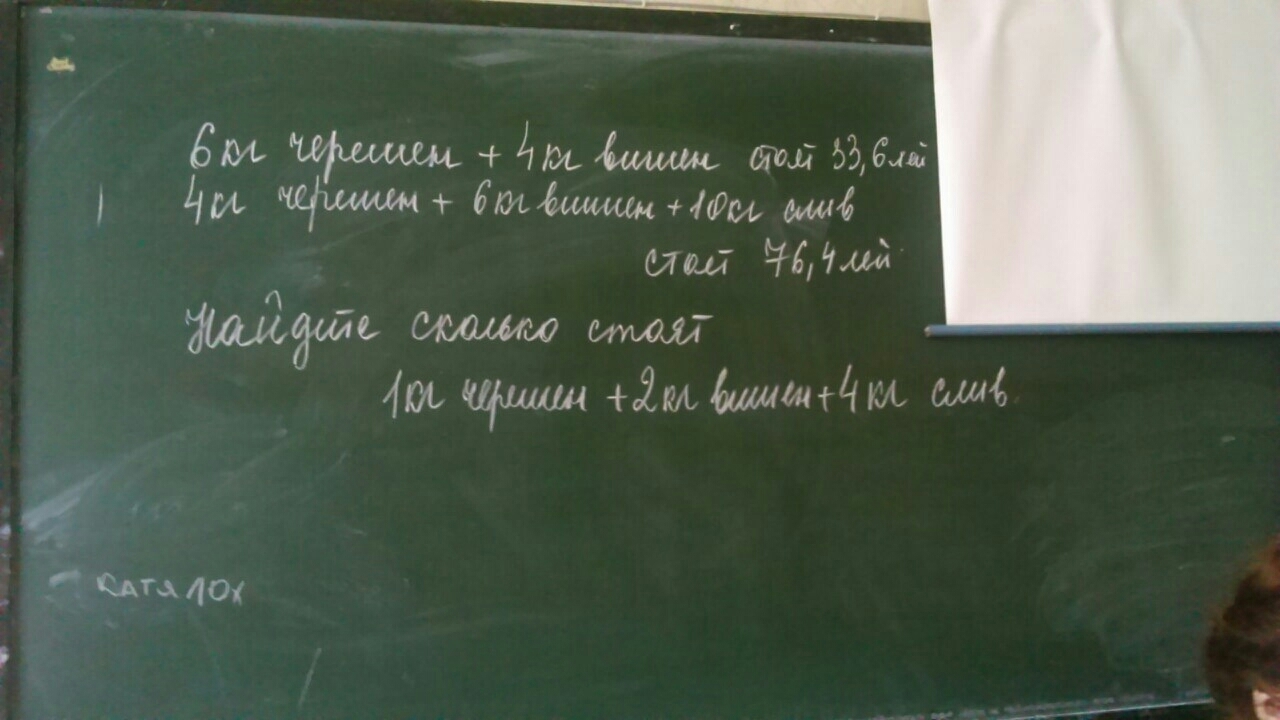 6кг черешен + 4кг вишен стоят 33,6 лей
4кг черешен + 6кг вишен + 10кг слив
стоят 76,4 лей
Найдите сколько стоят
1кг черешен + 2кг вишен + 4кг слив.
КАТЯ ЛОХ